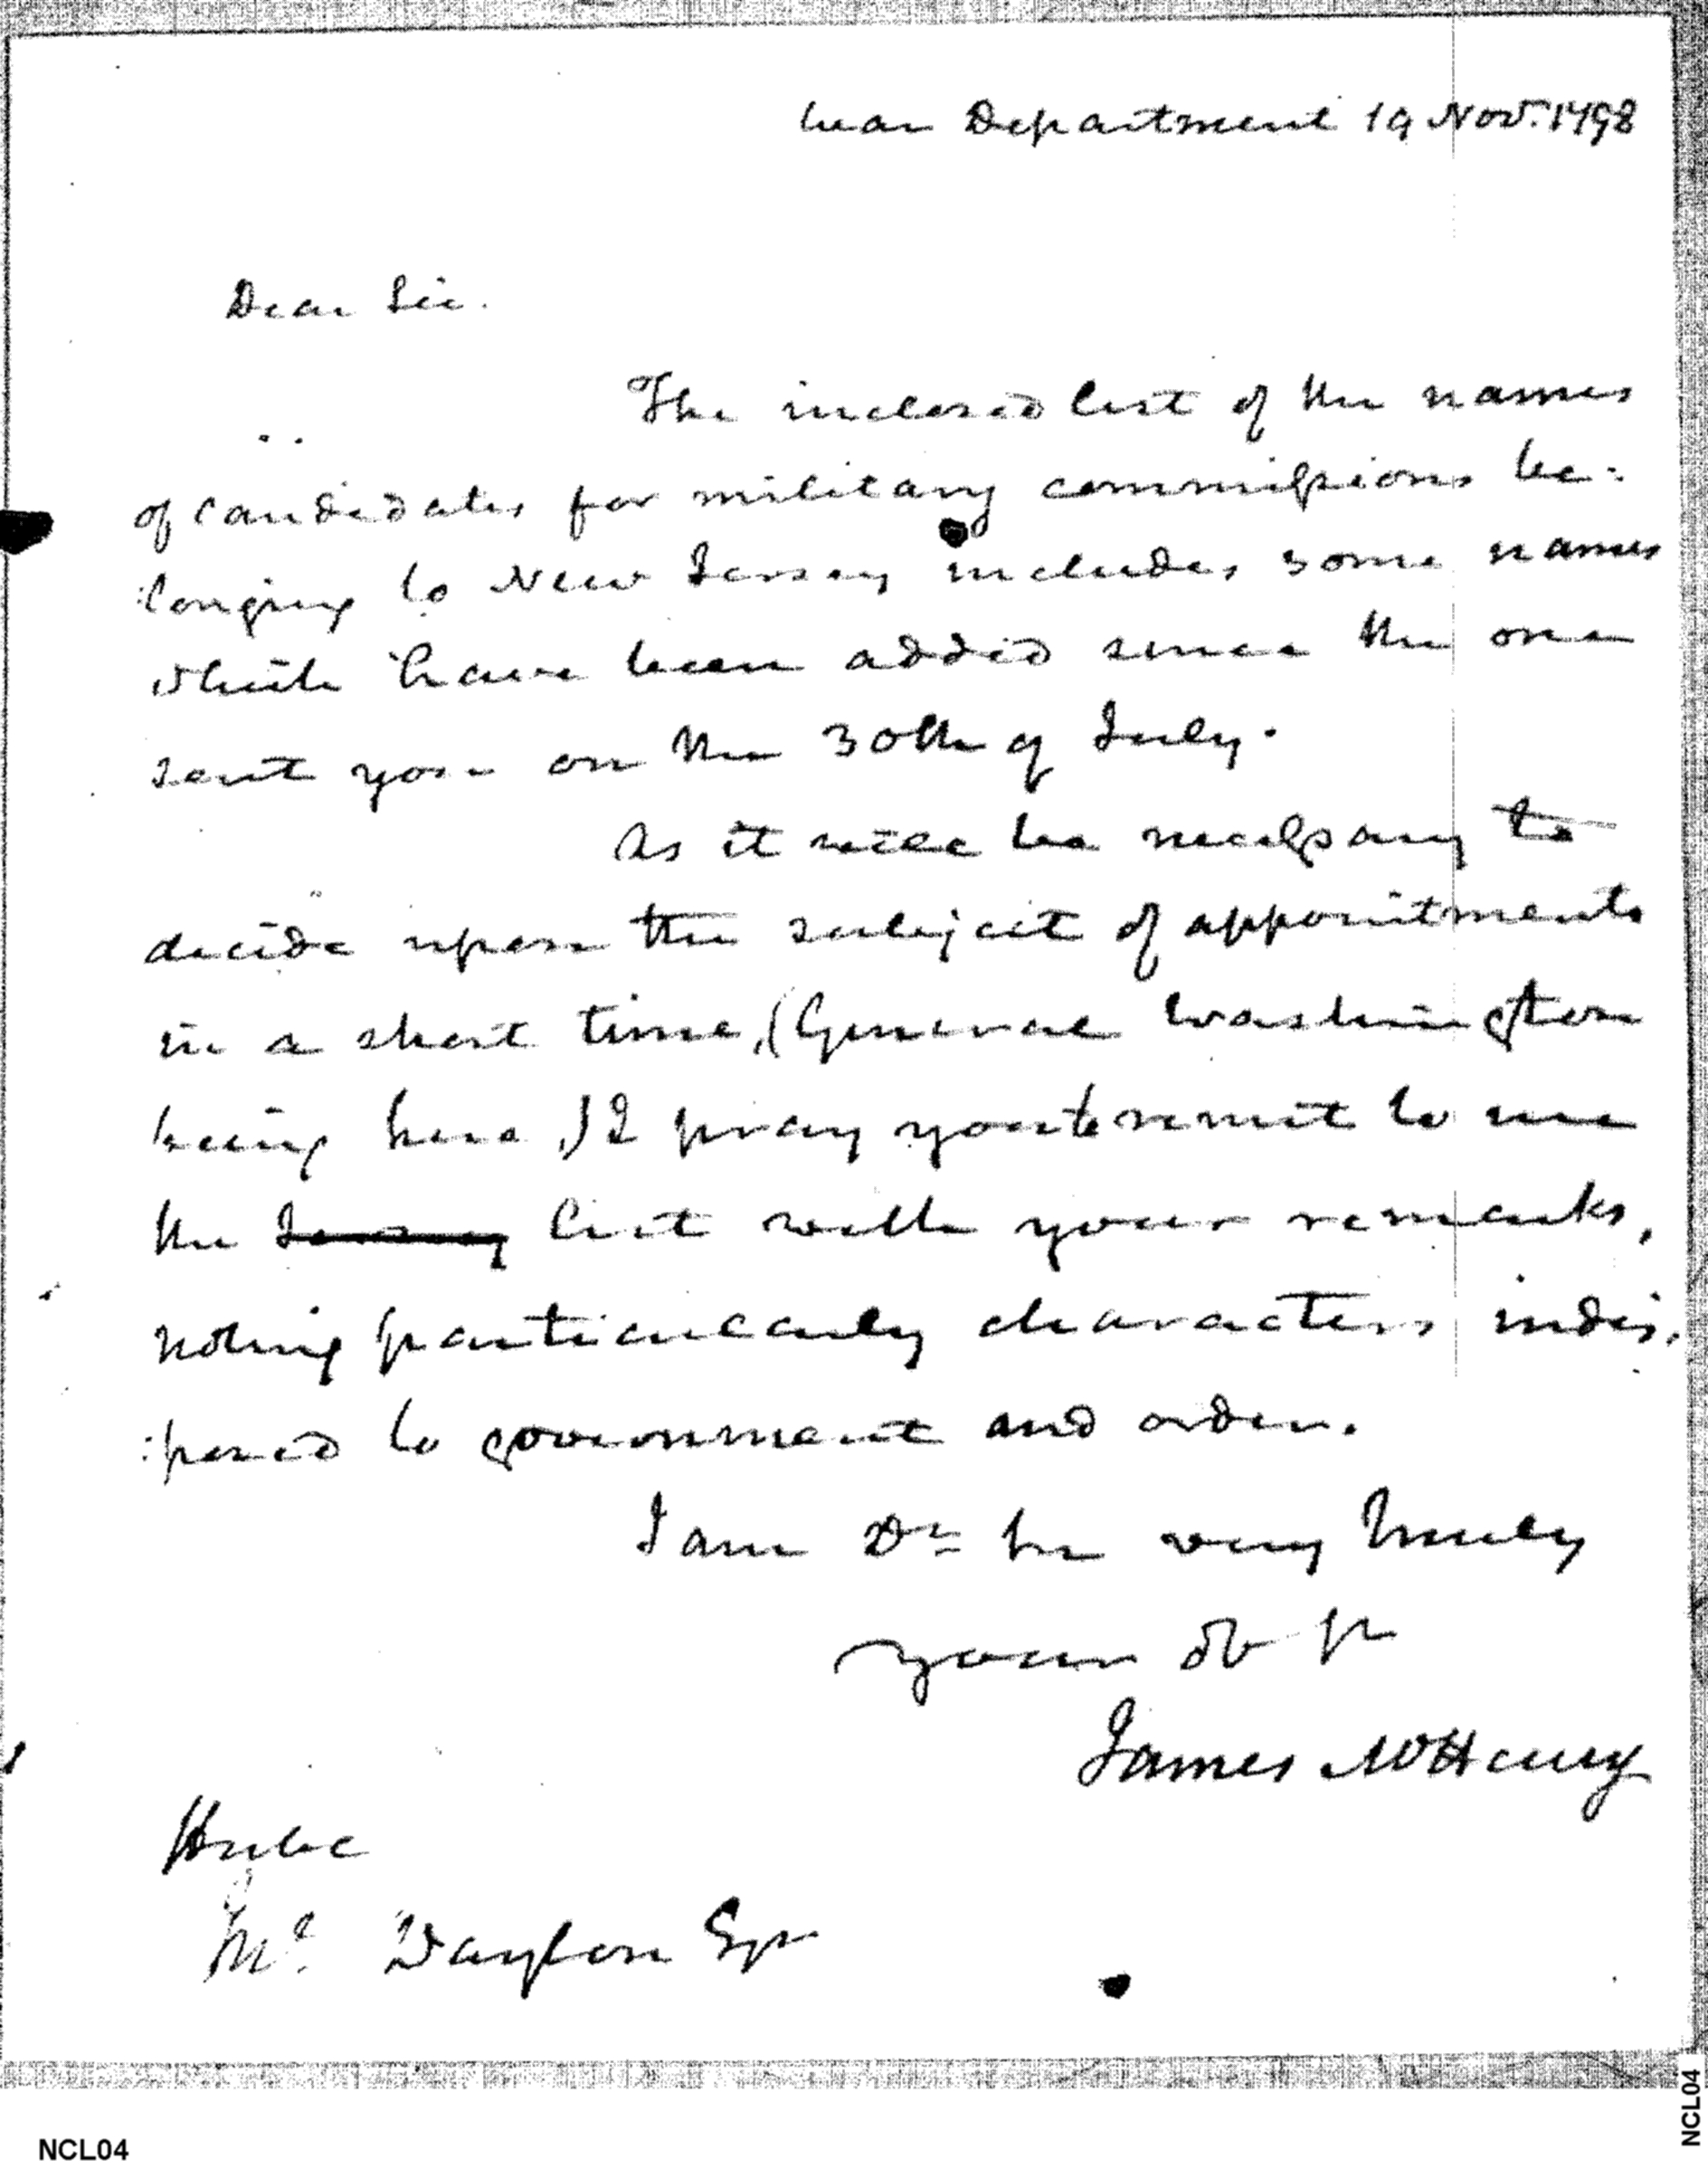 War Department 19 Nov. 1798
Dear Sir.
The inclosed list of the names
of candidates for military commissions be:
:longing to New Jersey includes some names
which have been added since the one
sent you on the 30th of July.
As it will be necessary to
decide upon the subject of appointments
in a short time, (General Washington
being here,) I pray you to remit to me
the Jersey list with your remarks,
noting particularly characters indis:
:posed to government and order.
I am Dr Sir very truly
your ob st
James McHenry
Honble
Mr. Dayton Esqr
NCL04
NCL04